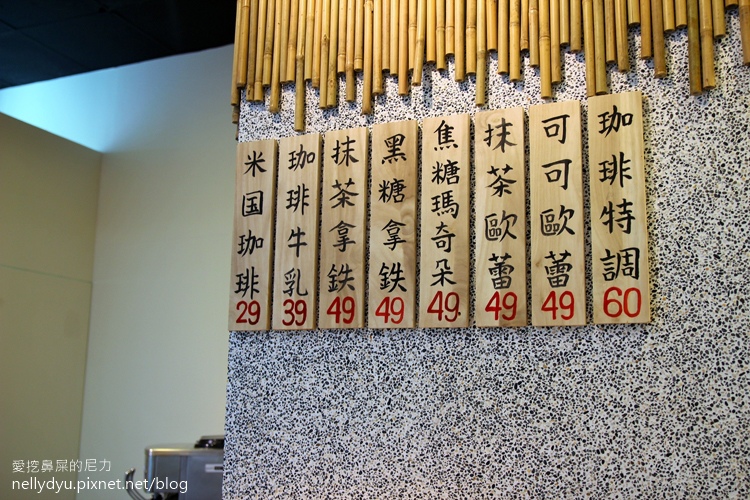 珈琲特調
60
可可歐蕾
49
抹茶歐蕾
49
焦糖瑪奇朵
49
黑糖拿鉄
49
抹茶拿鉄
49
珈琲牛乳
39
米国珈琲
29
愛挖鼻屎的尼力
nellydyu.pixnet.net/blog